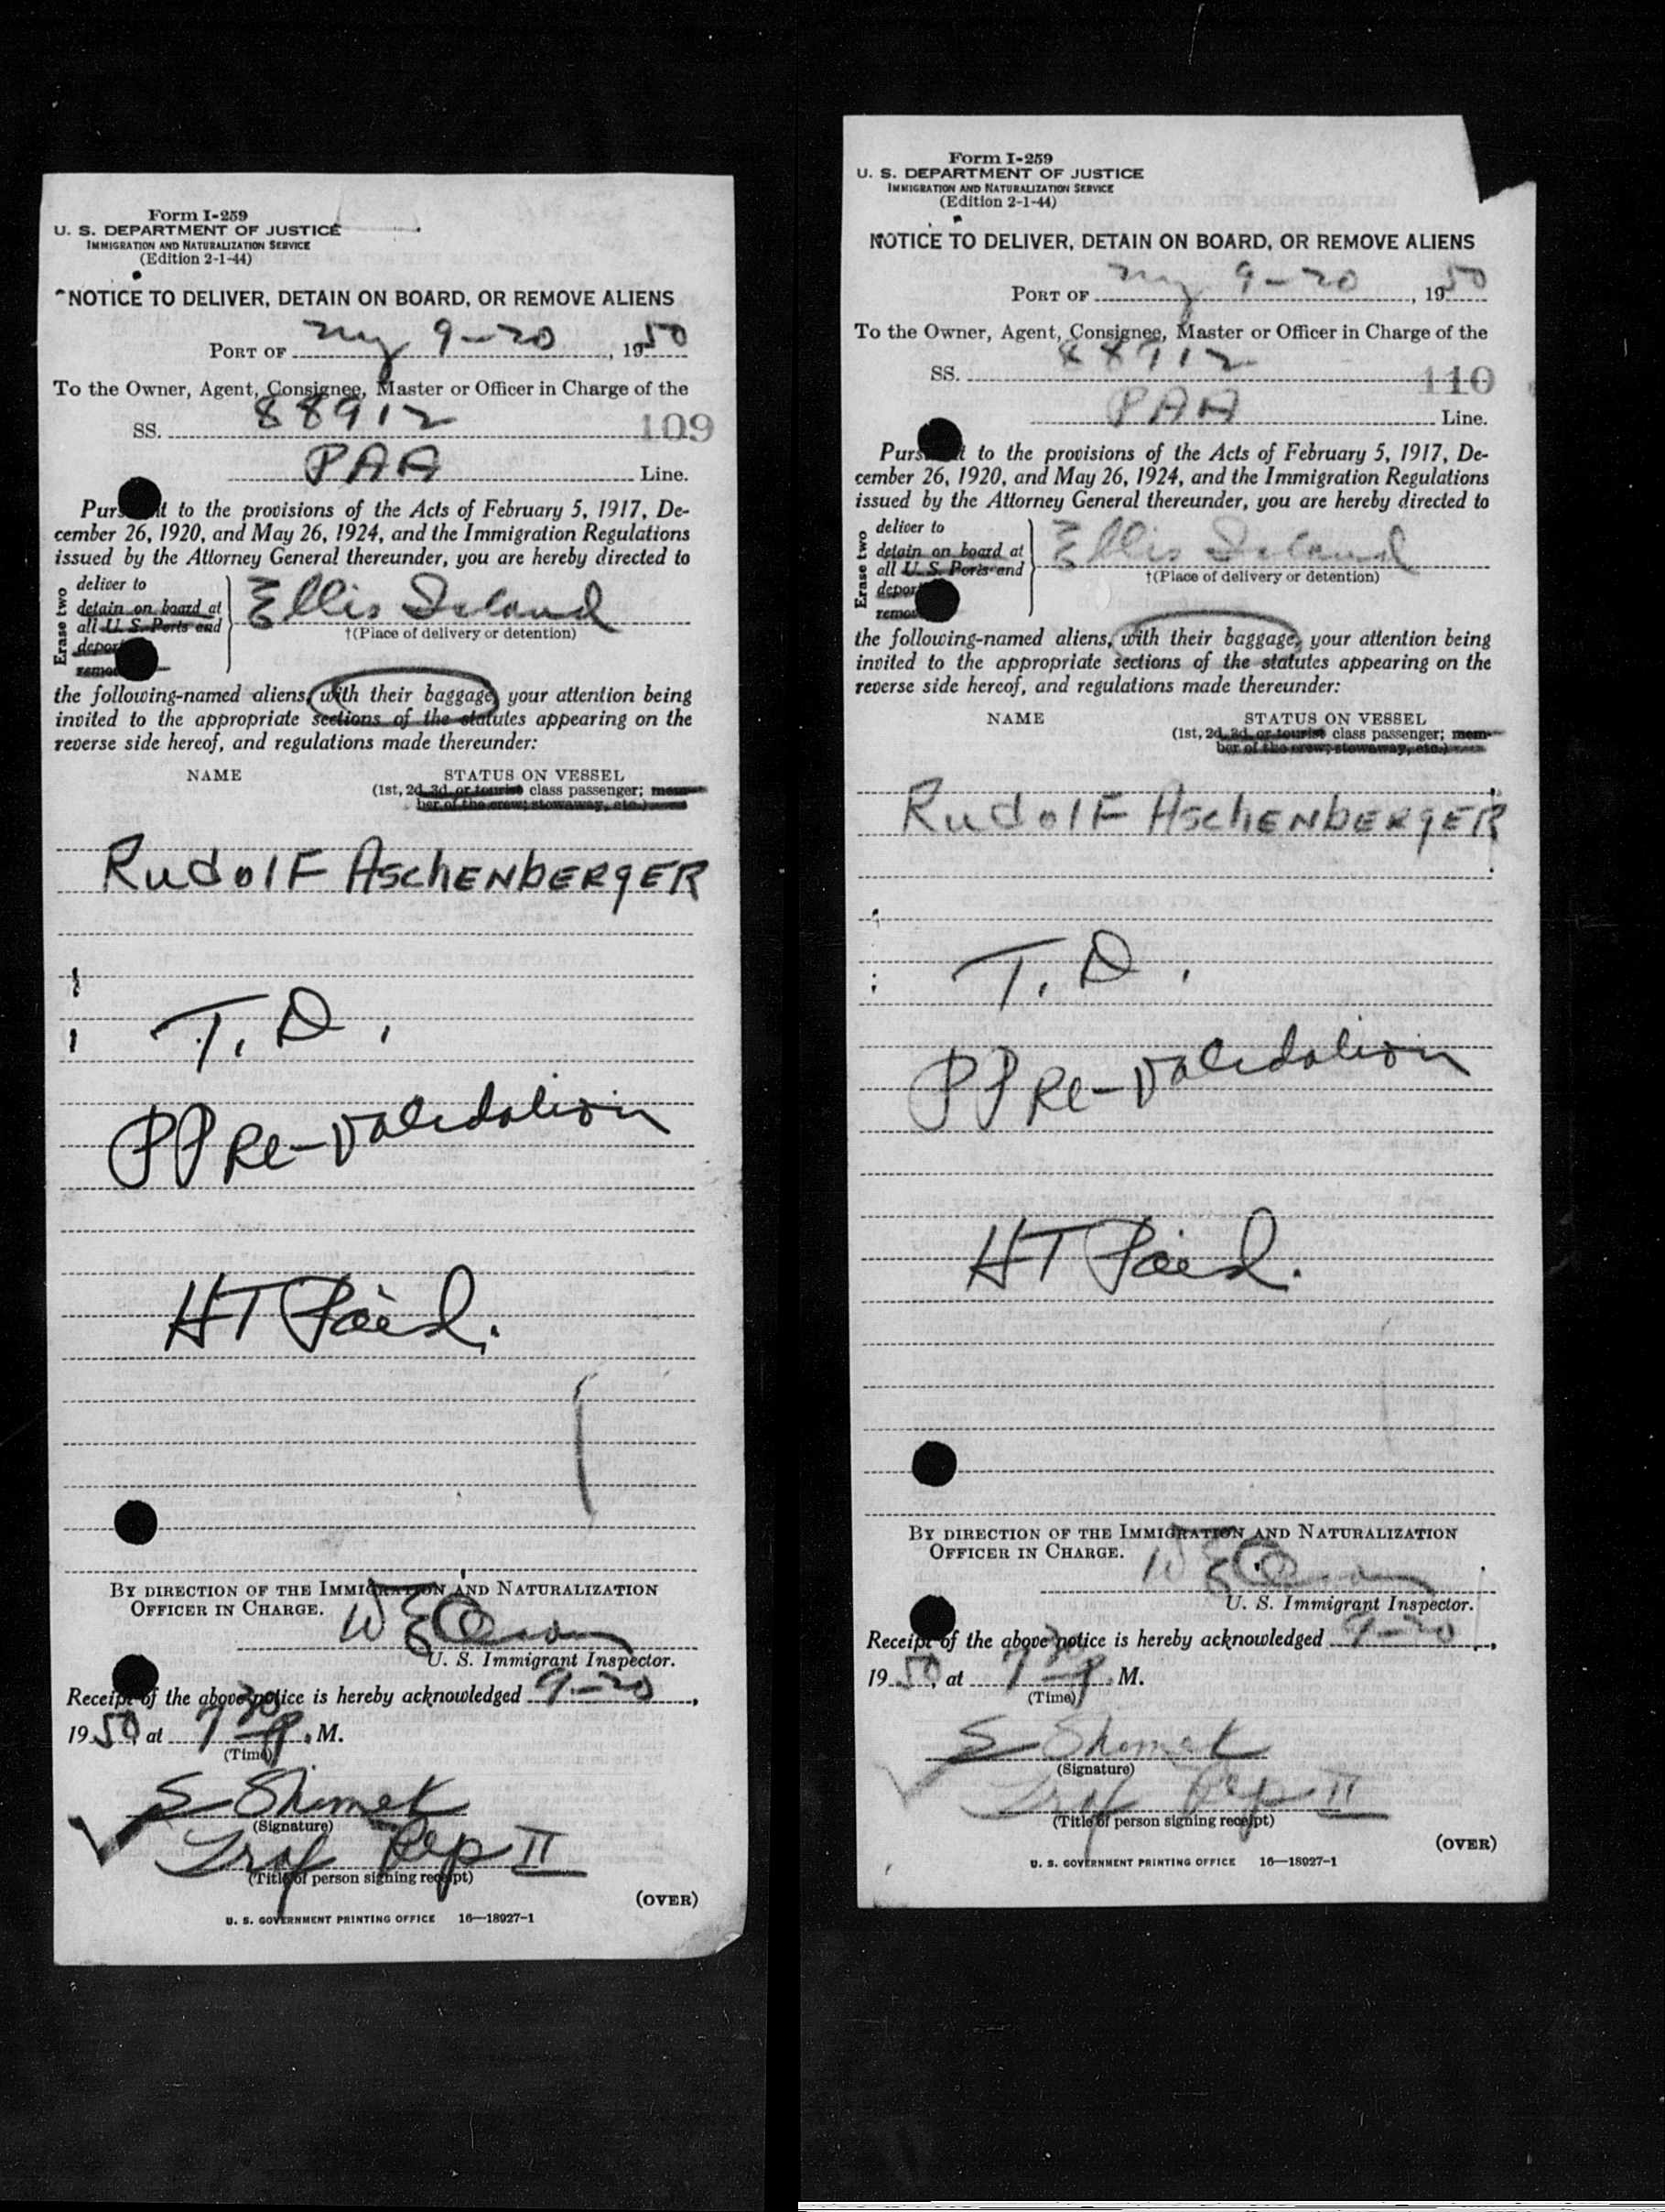 Form I-259
U. S. DEPARTMENT OF JUSTICE
IMMIGRATION AND NATURALIZATION SERVICE
(Edition 2-1-44)
NOTICE TO DELIVER, DETAIN ON BOARD, OR REMOVE ALIENS
PORT OF ny 9-20, 1950
To the Owner, Agent, Consignee, Master or Officer in Charge of the
SS. 88912
109
PAA Line.
Pursuant to the provisions of the Acts of February 5, 1917, De-
cember 26, 1920, and May 26, 1924, and the Immigration Regulations
issued by the Attorney General thereunder, you are hereby directed to
Erase two
deliver to
detain on board at
all U. S. Ports and
depor
remo
Ellis Island
†(Place of delivery or detention)
the following-named aliens, with their baggage, your attention being
invited to the appropriate sections of the statutes appearing on the
reverse side hereof, and regulations made thereunder:
NAME
STATUS ON VESSEL
(1st, 2d, 3d, or tourist class passenger; mem-
ber of the crew; stowaway, etc.)
Rudolf AschenbergER
T. D.
PP Re-validation
HT Paid.
BY DIRECTION OF THE IMMIGRATION AND NATURALIZATION
OFFICER IN CHARGE.
U. S. Immigrant Inspector.
Receipt of the above notice is hereby acknowledged 9-20,
1950, at 7 30 P. M.
(Time)
S Shimek
(Signature)
Traf Rep II
(Title of person signing receipt)
(OVER)
U. S. GOVERNMENT PRINTING OFFICE 16—18927-1
Form I-259
U. S. DEPARTMENT OF JUSTICE
IMMIGRATION AND NATURALIZATION SERVICE
(Edition 2-1-44)
NOTICE TO DELIVER, DETAIN ON BOARD, OR REMOVE ALIENS
PORT OF ny 9-20, 1950
To the Owner, Agent, Consignee, Master or Officer in Charge of the
SS. 88912
110
PAA Line.
Pursuant to the provisions of the Acts of February 5, 1917, De-
cember 26, 1920, and May 26, 1924, and the Immigration Regulations
issued by the Attorney General thereunder, you are hereby directed to
Erase two
deliver to
detain on board at
all U. S. Ports and
depor
remo
Ellis Island
†(Place of delivery or detention)
the following-named aliens, with their baggage, your attention being
invited to the appropriate sections of the statutes appearing on the
reverse side hereof, and regulations made thereunder:
NAME
STATUS ON VESSEL
(1st, 2d, 3d, or tourist class passenger; mem-
ber of the crew; stowaway, etc.)
Rudolf AschenbergER
T. D.
PP Re-validation
HT Paid.
BY DIRECTION OF THE IMMIGRATION AND NATURALIZATION
OFFICER IN CHARGE.
U. S. Immigrant Inspector.
Receipt of the above notice is hereby acknowledged 9-20,
1950, at 7 30 P. M.
(Time)
S Shimek
(Signature)
Traf Rep II
(Title of person signing receipt)
(OVER)
U. S. GOVERNMENT PRINTING OFFICE 16—18927-1